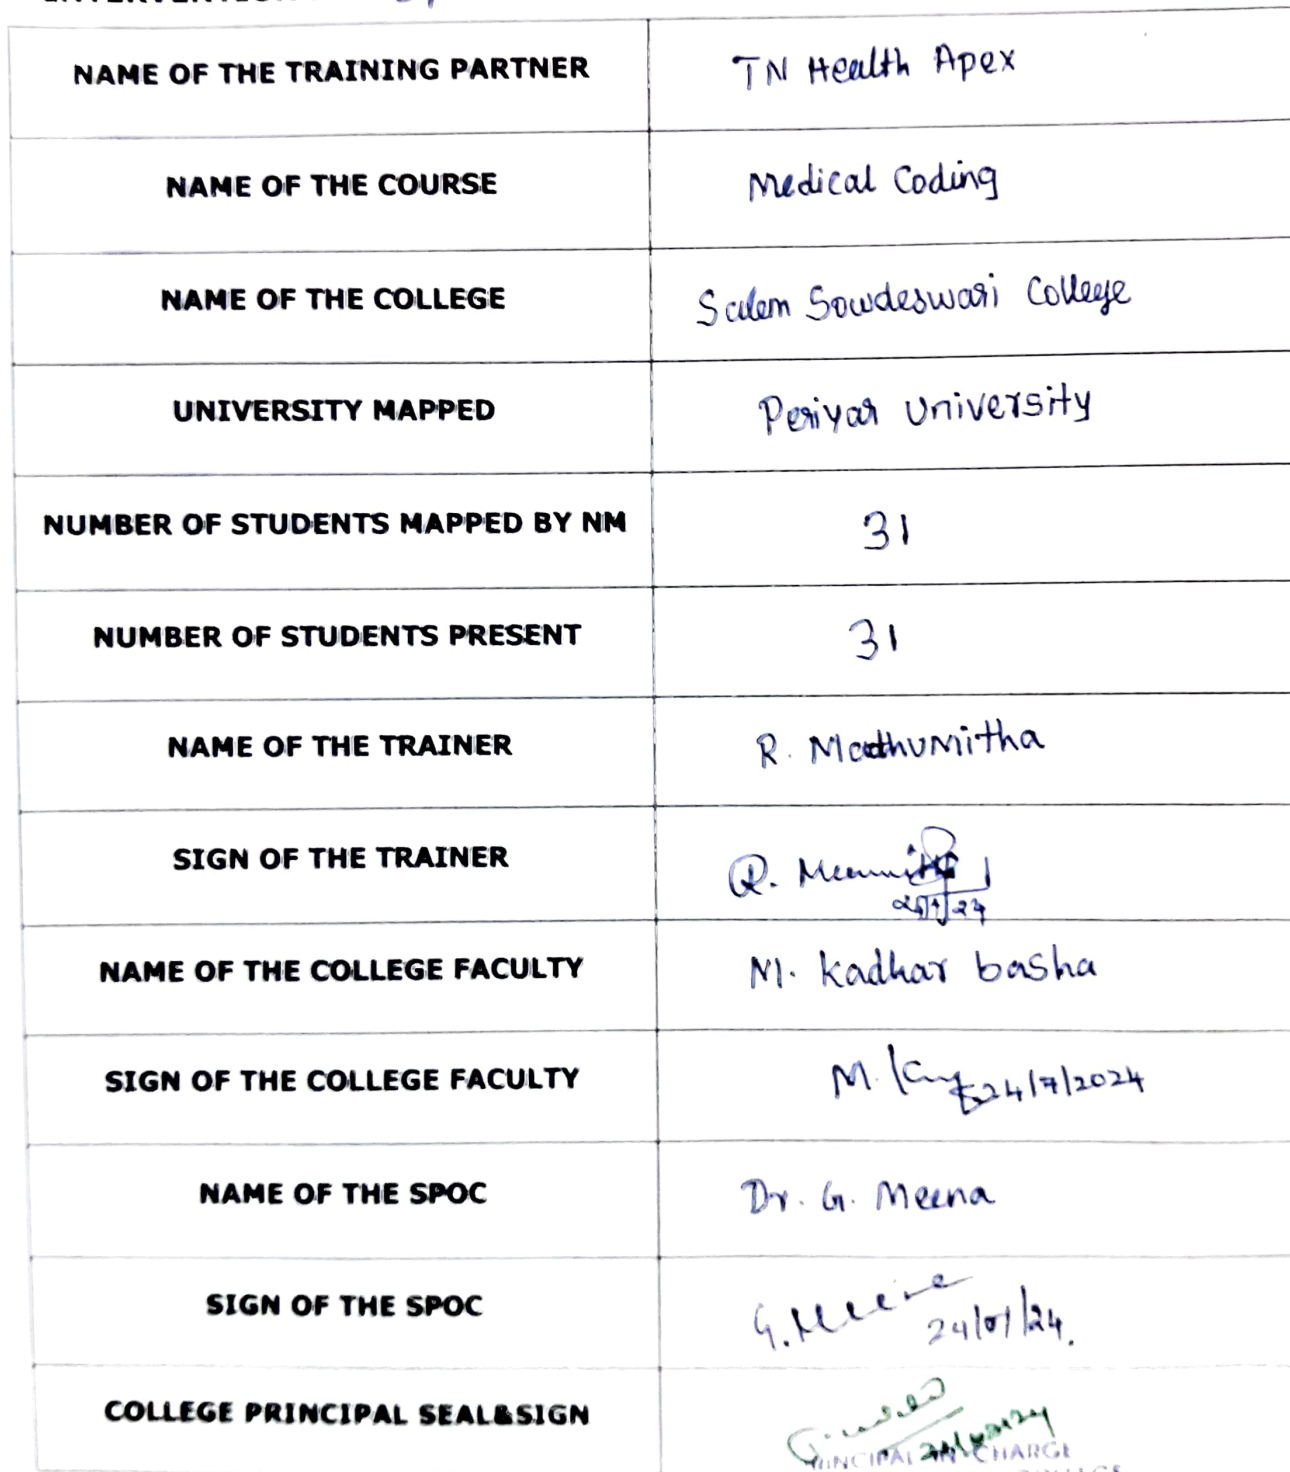 NAME OF THE TRAINING PARTNER TN Health Apex
NAME OF THE COURSE Medical Coding
NAME OF THE COLLEGE Salem Sowdeswari College
UNIVERSITY MAPPED Periyar University
NUMBER OF STUDENTS MAPPED BY NM 31
NUMBER OF STUDENTS PRESENT 31
NAME OF THE TRAINER R. Madhumitha
SIGN OF THE TRAINER R.
NAME OF THE COLLEGE FACULTY M. Kadhar basha
SIGN OF THE COLLEGE FACULTY M. 24/7/2024
NAME OF THE SPOC Dr. G. Meena
SIGN OF THE SPOC G. Meena
COLLEGE PRINCIPAL SEAL&SIGN
CHARGE